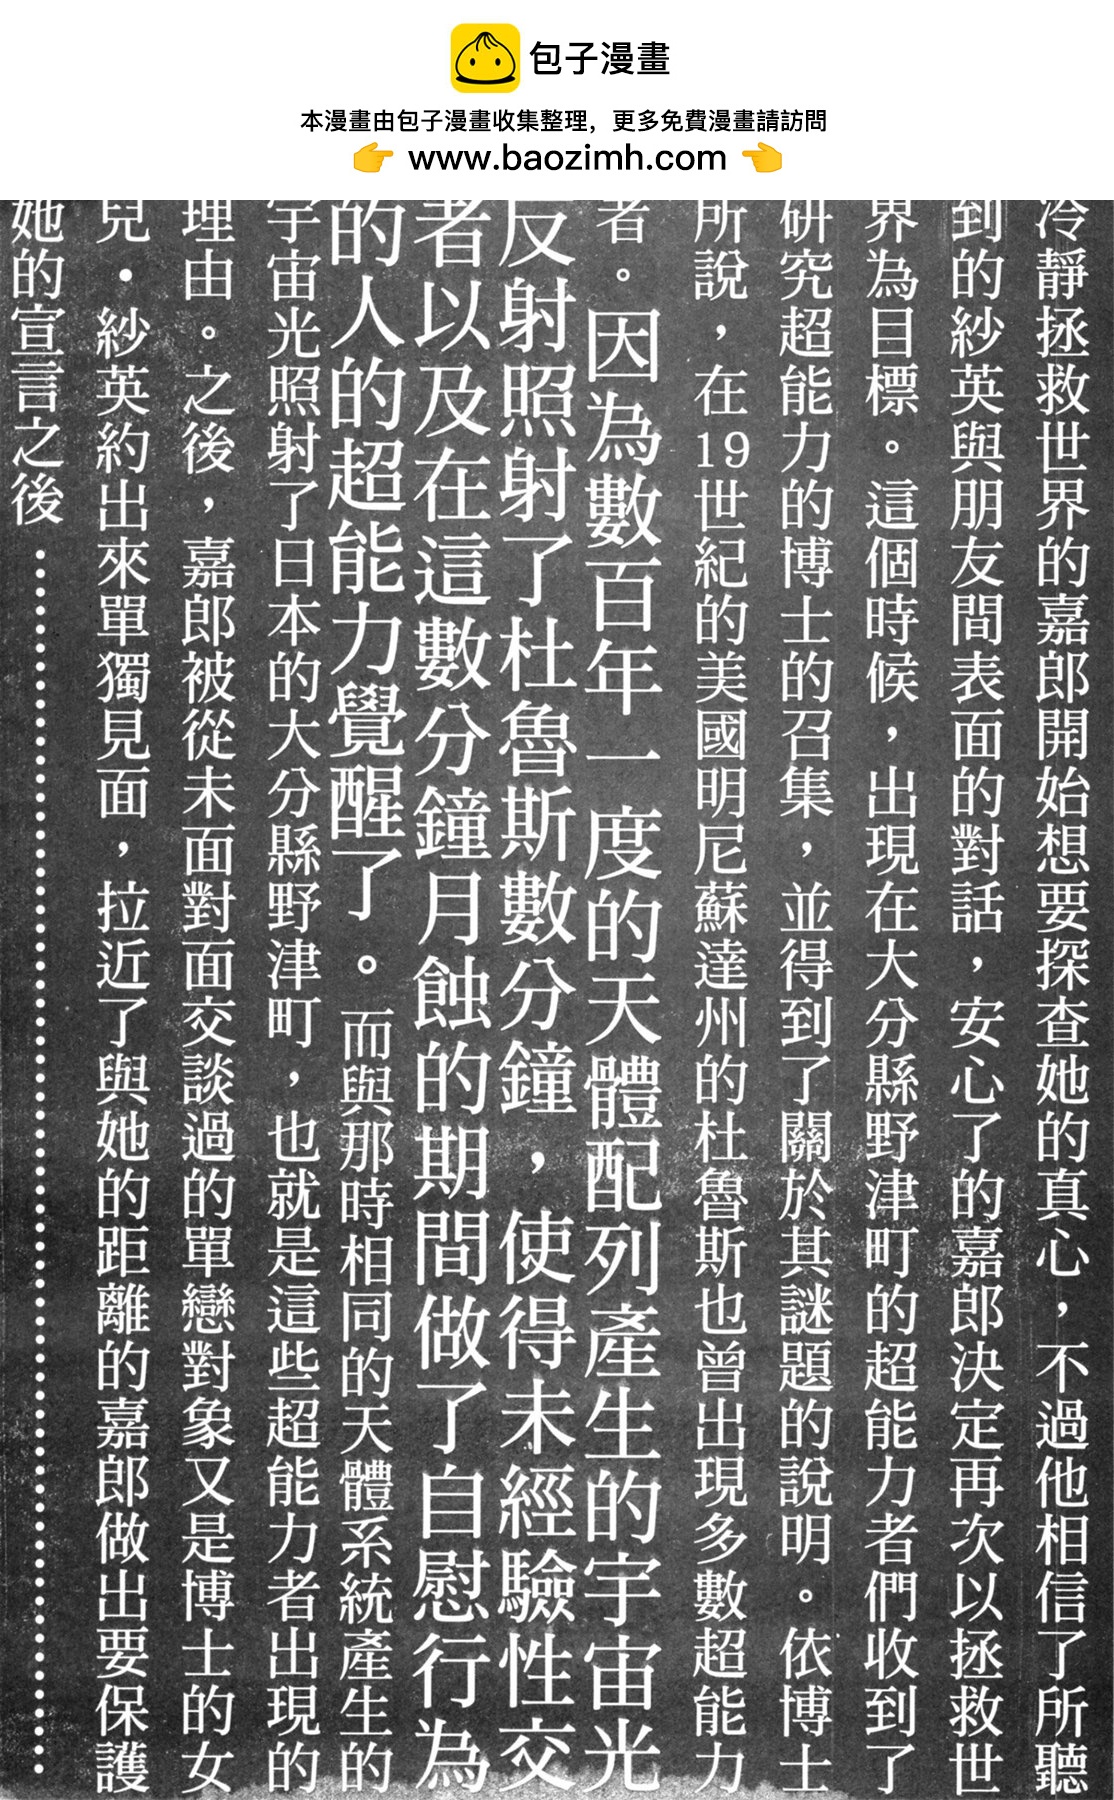 包子漫畫
本漫畫由包子漫畫收集整理，更多免費漫畫請訪問
www.baozimh.com
冷靜拯救世界的嘉郎開始想要探查她的真心，不過他相信了所聽
到的紗英與朋友間表面的對話，安心了的嘉郎決定再次以拯救世
界為目標。這個時候，出現在大分縣野津町的超能力者們收到了
研究超能力的博士的召集，並得到了關於其謎題的說明。依博士
所說，在19世紀的美國明尼蘇達州的杜魯斯也曾出現多數超能力
者。因為數百年一度的天體配列產生的宇宙光
反射照射了杜魯斯數分鐘，使得未經驗性交
者以及在這數分鐘月蝕的期間做了自慰行為
的人的超能力覺醒了。而與那時相同的天體系統產生的
宇宙光照射了日本的大分縣野津町，也就是這些超能力者出現的
理由。之後，嘉郎被從未面對面交談過的單戀對象又是博士的女
兒・紗英約出來單獨見面，拉近了與她的距離的嘉郎做出要保護
她的宣言之後………………………………………………